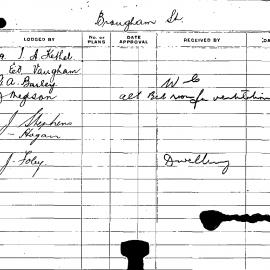 Brougham St
LODGED BY No. or PLANS DATE APPROVAL RECEIVED BY
Ed Vaughan
A. Bailey W C
Megson alt Bath room for ventilation
J Stephens
- Hogan
J. Foley Dwelling